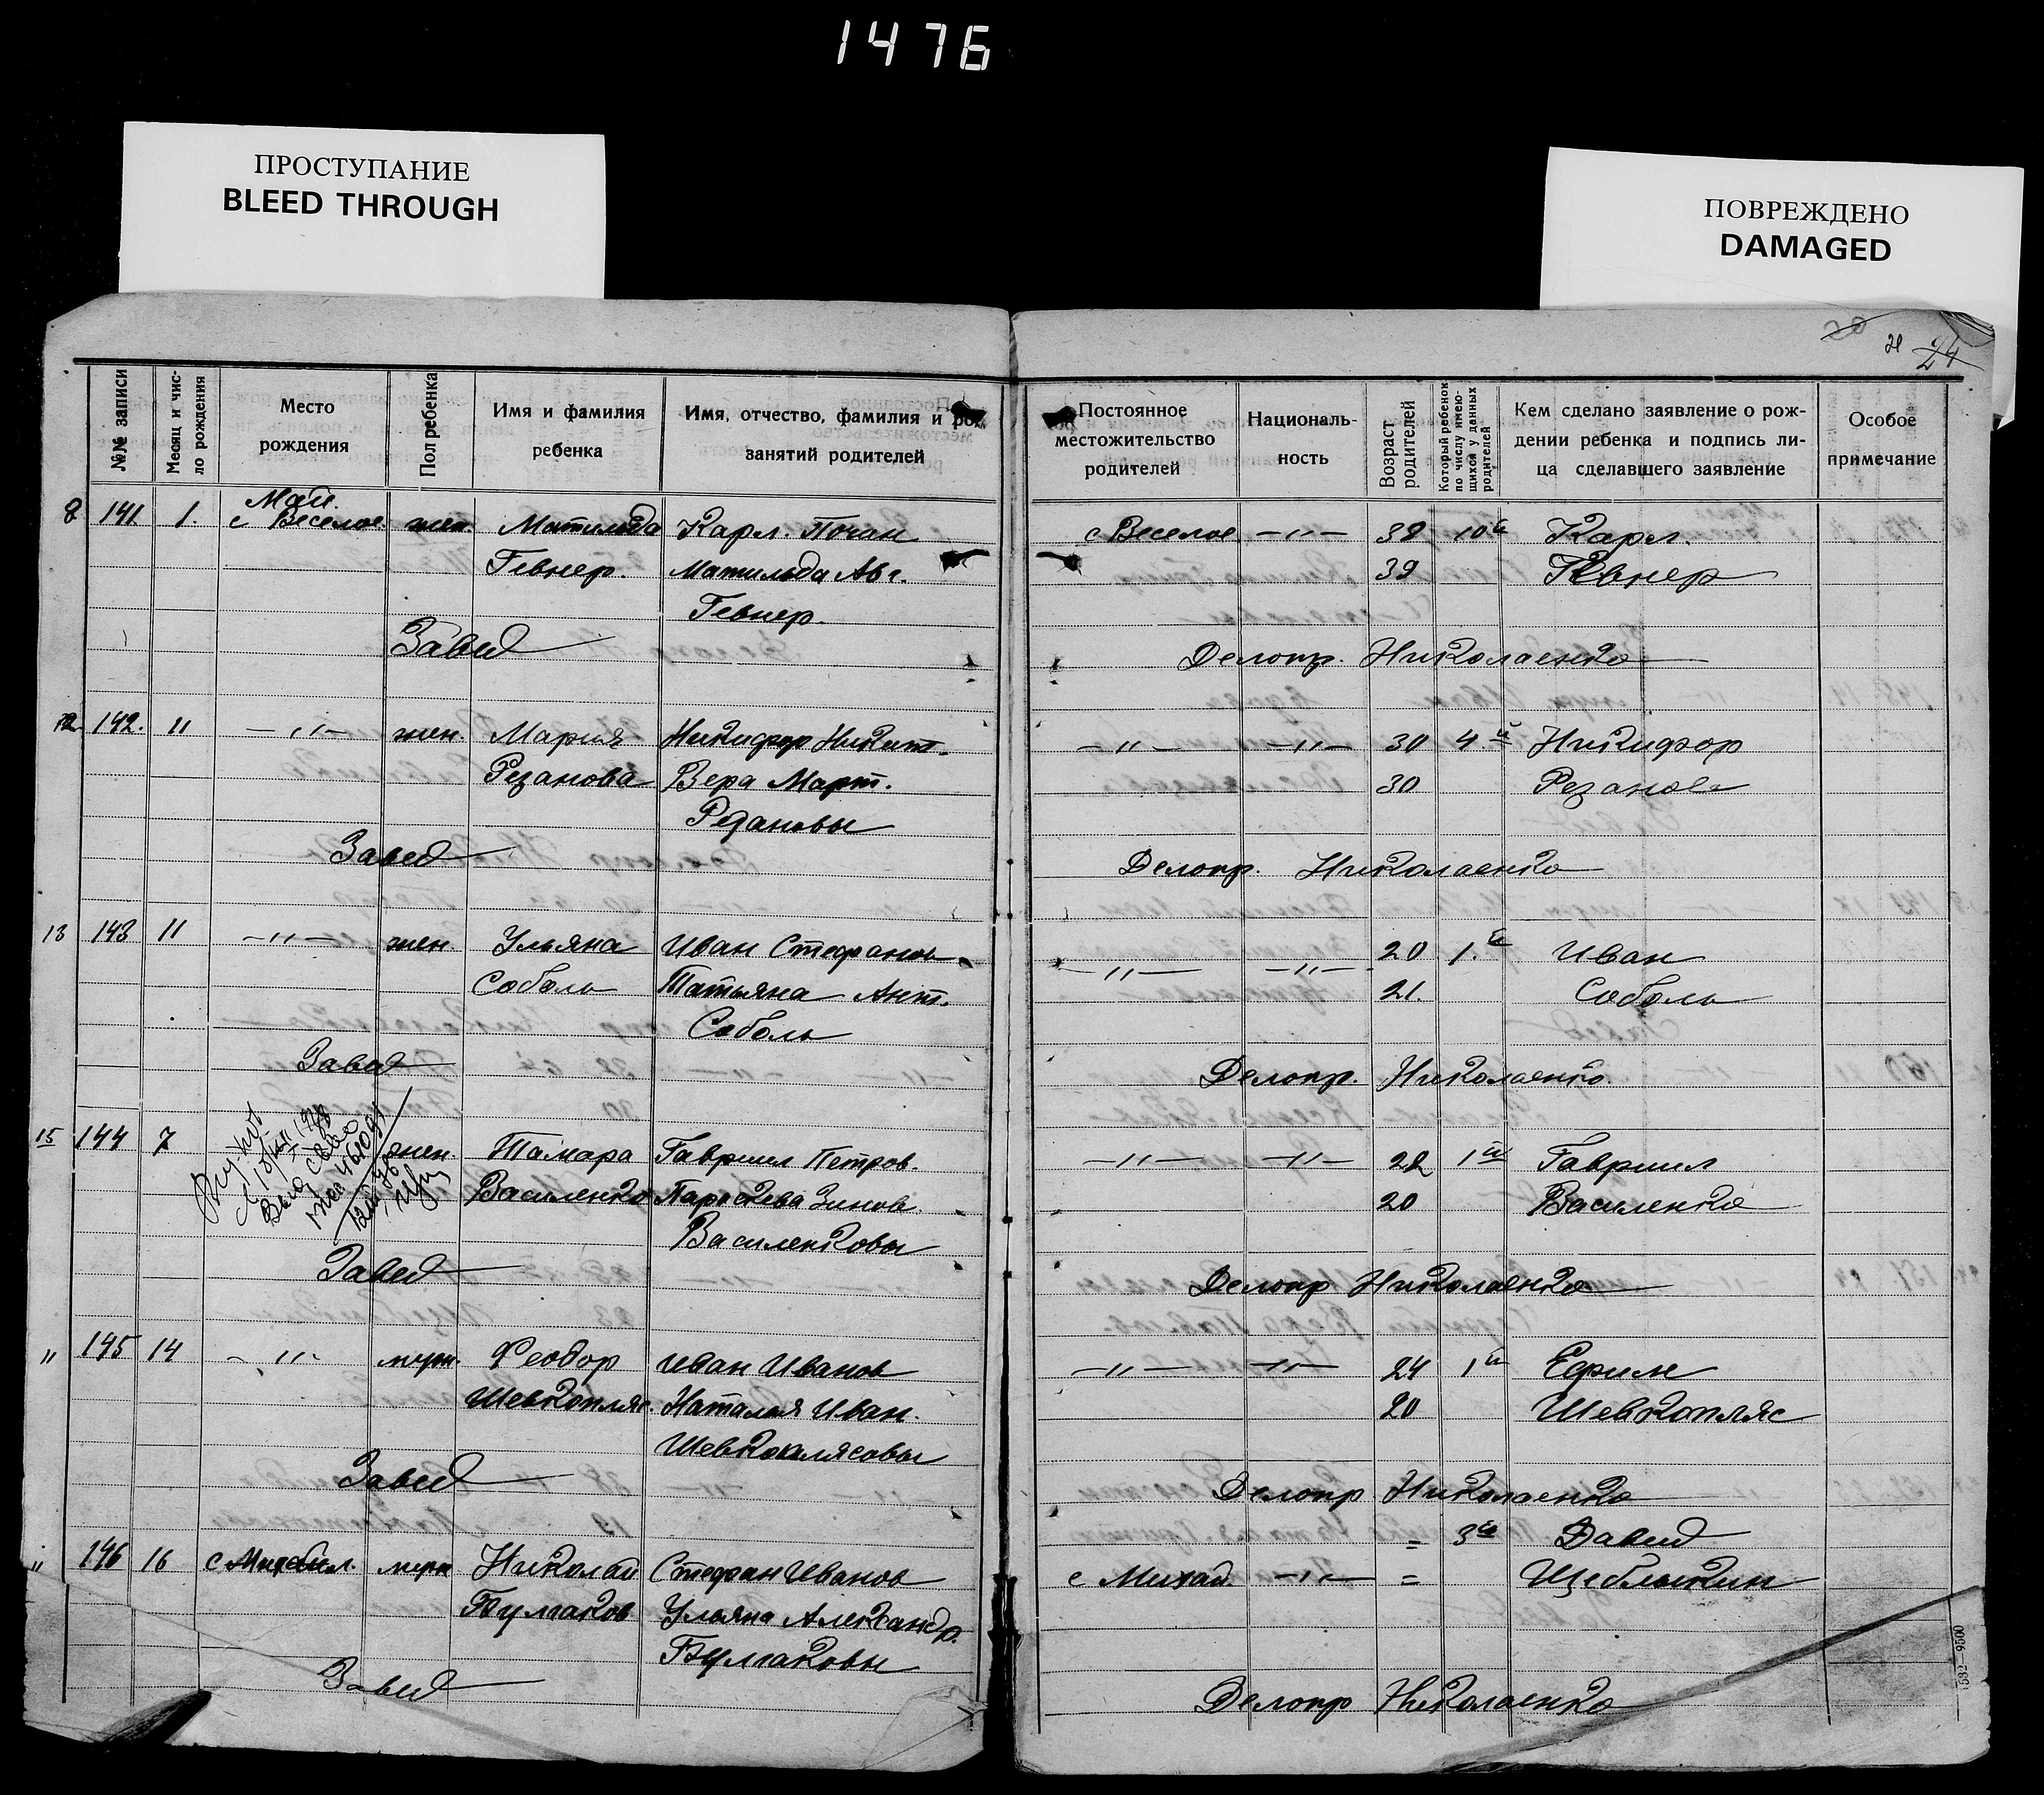 1476
ПРОСТУПАНИЕ
BLEED THROUGH
ПОВРЕЖДЕНО
DAMAGED
24
№№ записи
Месяц и чис-
ло рождения
Место
рождения
Пол ребенка
Имя и фамилия
ребенка
Имя, отчество, фамилия и род
занятий родителей
Постоянное
местожительство
родителей
Националь-
ность
Возраст
родителей
Который ребенок
по числу имею-
щихся у данных
родителей
Кем сделано заявление о рож-
дении ребенка и подпись ли-
ца сделавшего заявление
Особое
примечание
Май.
8 141 1. с Веселое жен. Матильда Карл. с Веселое —"— 38 10й Карл.
Гевнер. Матильда Авг. 39 Гевнер
Гевнер.
Завед Делопр. Николаенко
12 142. 11 —"— жен. Мария Никифор Никит. —"— —"— 30 4й Никифор
Резанова Вера Март. 30 Резанов
Резановы
Завед Делопр. Николаенко
13 143 11 —"— жен. Ульяна Иван Стефанов —"— —"— 20 1.й Иван
Соболь Татьяна Ант. 21. Соболь
Соболь
Завед Делопр. Николаенко.
15 144 7 жен. Тамара Гавриил Петров. —"— —"— 22 1й Гавриил
Василенко Параскева Зинов. 20 Василенко
Василенковы
Завед Делопр Николаенко
" 145 14 —"— муж. Феодор Иван Иванов —"— —"— 24 1й Ефим
Шевкопляс. Наталья Иван. 20 Шевкопляс
Шевкоплясовы
Завед Делопр Николаенко
= 3й Давид
" 146 16 муж Николай Стефан Иванов с Михай. —"— = Щеблыкин
Булгаков Ульяна Александр.
Булгаковы
Завед Делопр Николаенко
1532—9500